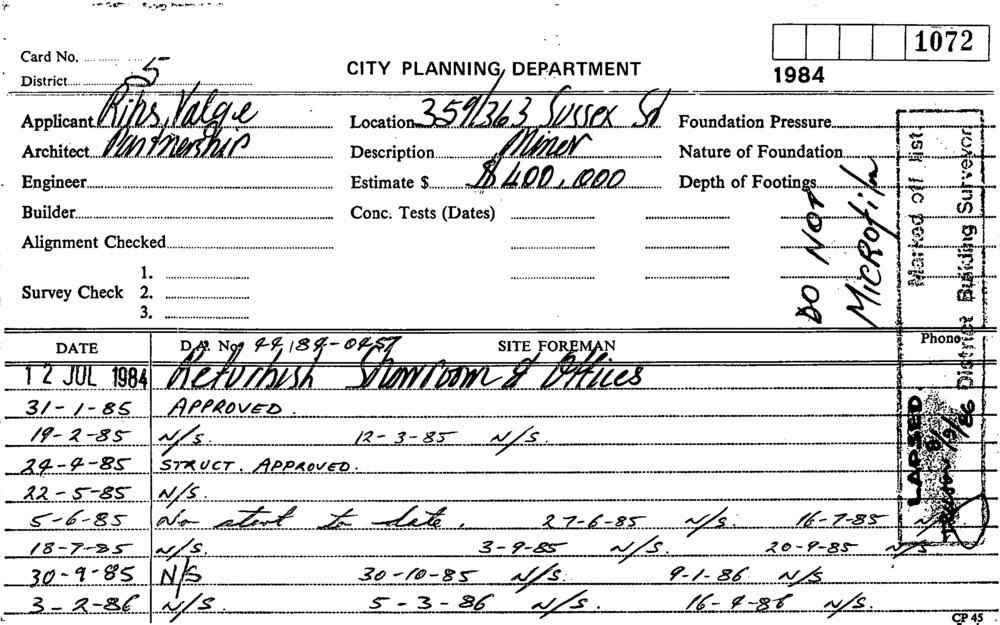 1072
Card No.
5
CITY PLANNING DEPARTMENT
1984
District
Applicant Rihs, Valgie Location 359/363 Sussex St Foundation Pressure
Architect Partnership Description Minor Nature of Foundation
Engineer Estimate $ $400,000 Depth of Footings
Builder Conc. Tests (Dates)
Alignment Checked
1.
Survey Check 2.
3.
DO NOT
MICROFILM
Marked off list
District Building Surveyor
LAPSED
8/9/86
DATE D.A. No. 44/84-0457 SITE FOREMAN Phone
12 JUL 1984 Refurbish Showroom & Offices
31-1-85 APPROVED.
19-2-85 N/S. 12-3-85 N/S.
24-4-85 STRUCT. APPROVED.
22-5-85 N/S.
5-6-85 No start to date. 27-6-85 N/S. 16-7-85 N/S
18-7-85 N/S. 3-9-85 N/S. 20-9-85 N/S
30-9-85 N/S 30-10-85 N/S. 9-1-86 N/S
3-2-86 N/S. 5-3-86 N/S. 16-4-86 N/S.
CP 45